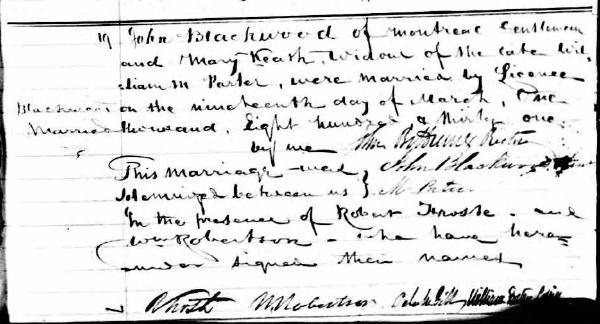 19 John Blackwood of Montreal Gentleman
and Mary Keath, Widow of the late Wil-
liam M Porter, were married by Licence
on the nineteenth day of March, One
thousand, Eight hundred & thirty one
by me John
Blackwood
Married
This marriage was John Blackwood
solemnized between us } M
In the presence of Robert Froste and
Wm Robertson - who have here-
under signed their names
W Robertson William